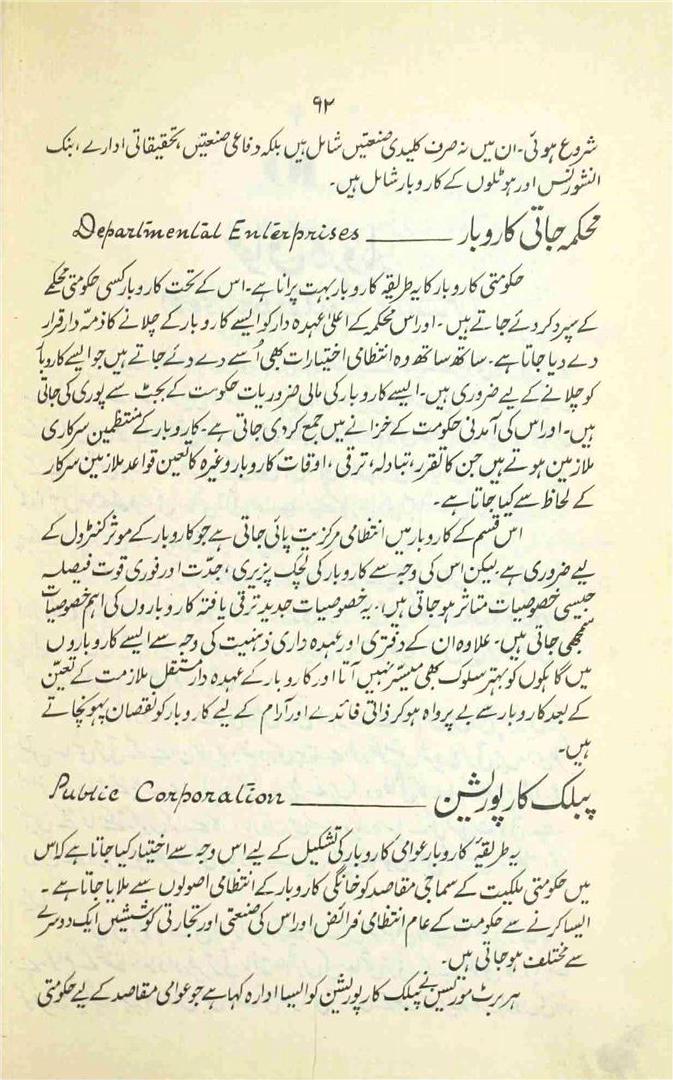 ۹۲
شروع ہوئی۔ ان میں نہ صرف کلیدی صنعتیں شامل ہیں بلکہ دفاعی صنعتیں، تحقیقاتی ادارے، بنک
انشورنس اور ہوٹلوں کے کاروبار شامل ہیں۔
محکمہ جاتی کاروبار ——— Departmental Enterprises
حکومتی کاروبار کا یہ طریقۂ کاروبار بہت پرانا ہے۔ اس کے تحت کاروبار کسی حکومتی محکمے
کے سپرد کر دئے جاتے ہیں۔ اور اس محکمہ کے اعلیٰ عہدہ دار کو ایسے کاروبار کے چلانے کا ذمّہ دار قرار
دے دیا جاتا ہے۔ ساتھ ساتھ وہ انتظامی اختیارات بھی اُسے دے دئے جاتے ہیں جو ایسے کاروبار
کو چلانے کے لیے ضروری ہیں۔ ایسے کاروبار کی مالی ضروریات حکومت کے بجٹ سے پوری کی جاتی
ہیں۔ اور اس کی آمدنی حکومت کے خزانے میں جمع کر دی جاتی ہے۔ کاروبار کے منتظمین سرکاری
ملازمین ہوتے ہیں جن کا تقرر، تبادلہ، ترقی، اوقات کاروبار وغیرہ کا تعین قواعد ملازمین سرکار
کے لحاظ سے کیا جاتا ہے۔
اس قسم کے کاروبار میں انتظامی مرکزیت پائی جاتی ہے جو کاروبار کے موثر کنٹرول کے
لیے ضروری ہے۔ لیکن اس کی وجہ سے کاروبار کی لچک پزیری، جدّت اور فوری قوت فیصلہ
جیسی خصوصیات متاثر ہو جاتی ہیں۔ یہ خصوصیات جدید ترقی یافتہ کاروباروں کی اہم خصوصیات
سمجھی جاتی ہیں۔ علاوہ ان کے دفتری اور عہدہ داری ذہنیت کی وجہ سے ایسے کاروباروں
میں گاہکوں کو بہتر سلوک بھی میسّر نہیں آتا اور کاروبار کے عہدہ دار مستقل ملازمت کے تعیّن
کے بعد کاروبار سے بے پرواہ ہو کر ذاتی فائدے اور آرام کے لیے کاروبار کو نقصان پہونچاتے
ہیں۔
پبلک کارپوریشن ——— Public Corporation
یہ طریقۂ کاروبار عوامی کاروبار کی تشکیل کے لیے اس وجہ سے اختیار کیا جاتا ہے کہ اس
میں حکومتی ملکیت کے سماجی مقاصد کو خانگی کاروبار کے انتظامی اصولوں سے ملایا جاتا ہے۔
ایسا کرنے سے حکومت کے عام انتظامی فرائض اور اس کی صنعتی اور تجارتی کوششیں ایک دوسرے
سے مختلف ہو جاتی ہیں۔
ہربرٹ موریسن نے پبلک کارپوریشن کو ایسا ادارہ کہا ہے جو عوامی مقاصد کے لیے حکومتی